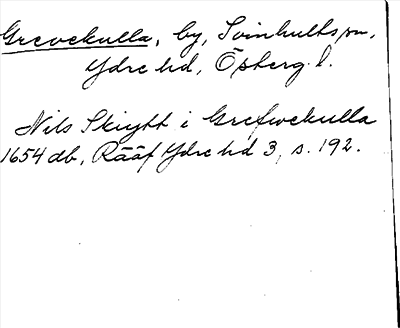 Grevekulla, by, Svinhults sn,
Ydre hd, Östergl.
Nils Skrytt i Grefwekulla
1654 db, Rääf Ydre hd 3, s. 192.